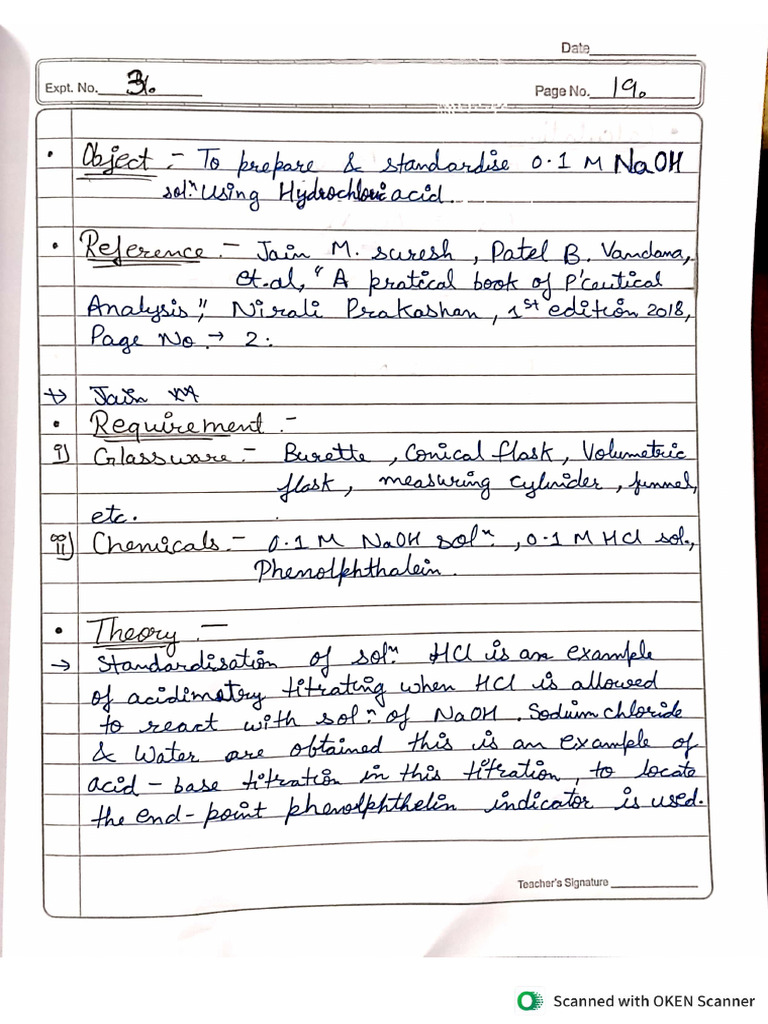 Date
Expt. No. 3.
Page No. 19.
• Object :- To prepare & standardise 0.1 M NaOH
solⁿ using Hydrochloric acid.
• Reference :- Jain M. suresh, Patel B. Vandana,
et.al, "A pratical book of P'ceutical
Analysis", Nirali Prakashan, 1st edition 2018,
Page No → 2.
Jain
• Requirement :-
i) Glassware :- Burette, Conical flask, Volumetric
flask, measuring cylinder, funnel,
etc.
ii) Chemicals :- 0.1 M NaOH solⁿ., 0.1 M HCl sol.,
Phenolphthalein.
• Theory :-
→ Standardisation of solⁿ. HCl is an example
of acidimetory titrating when HCl is allowed
to react with solⁿ of NaOH. Sodium chloride
& Water are obtained this is an example of
acid - base titration in this titration, to locate
the end-point phenolphthelin indicator is used.
Teacher's Signature
Scanned with OKEN Scanner